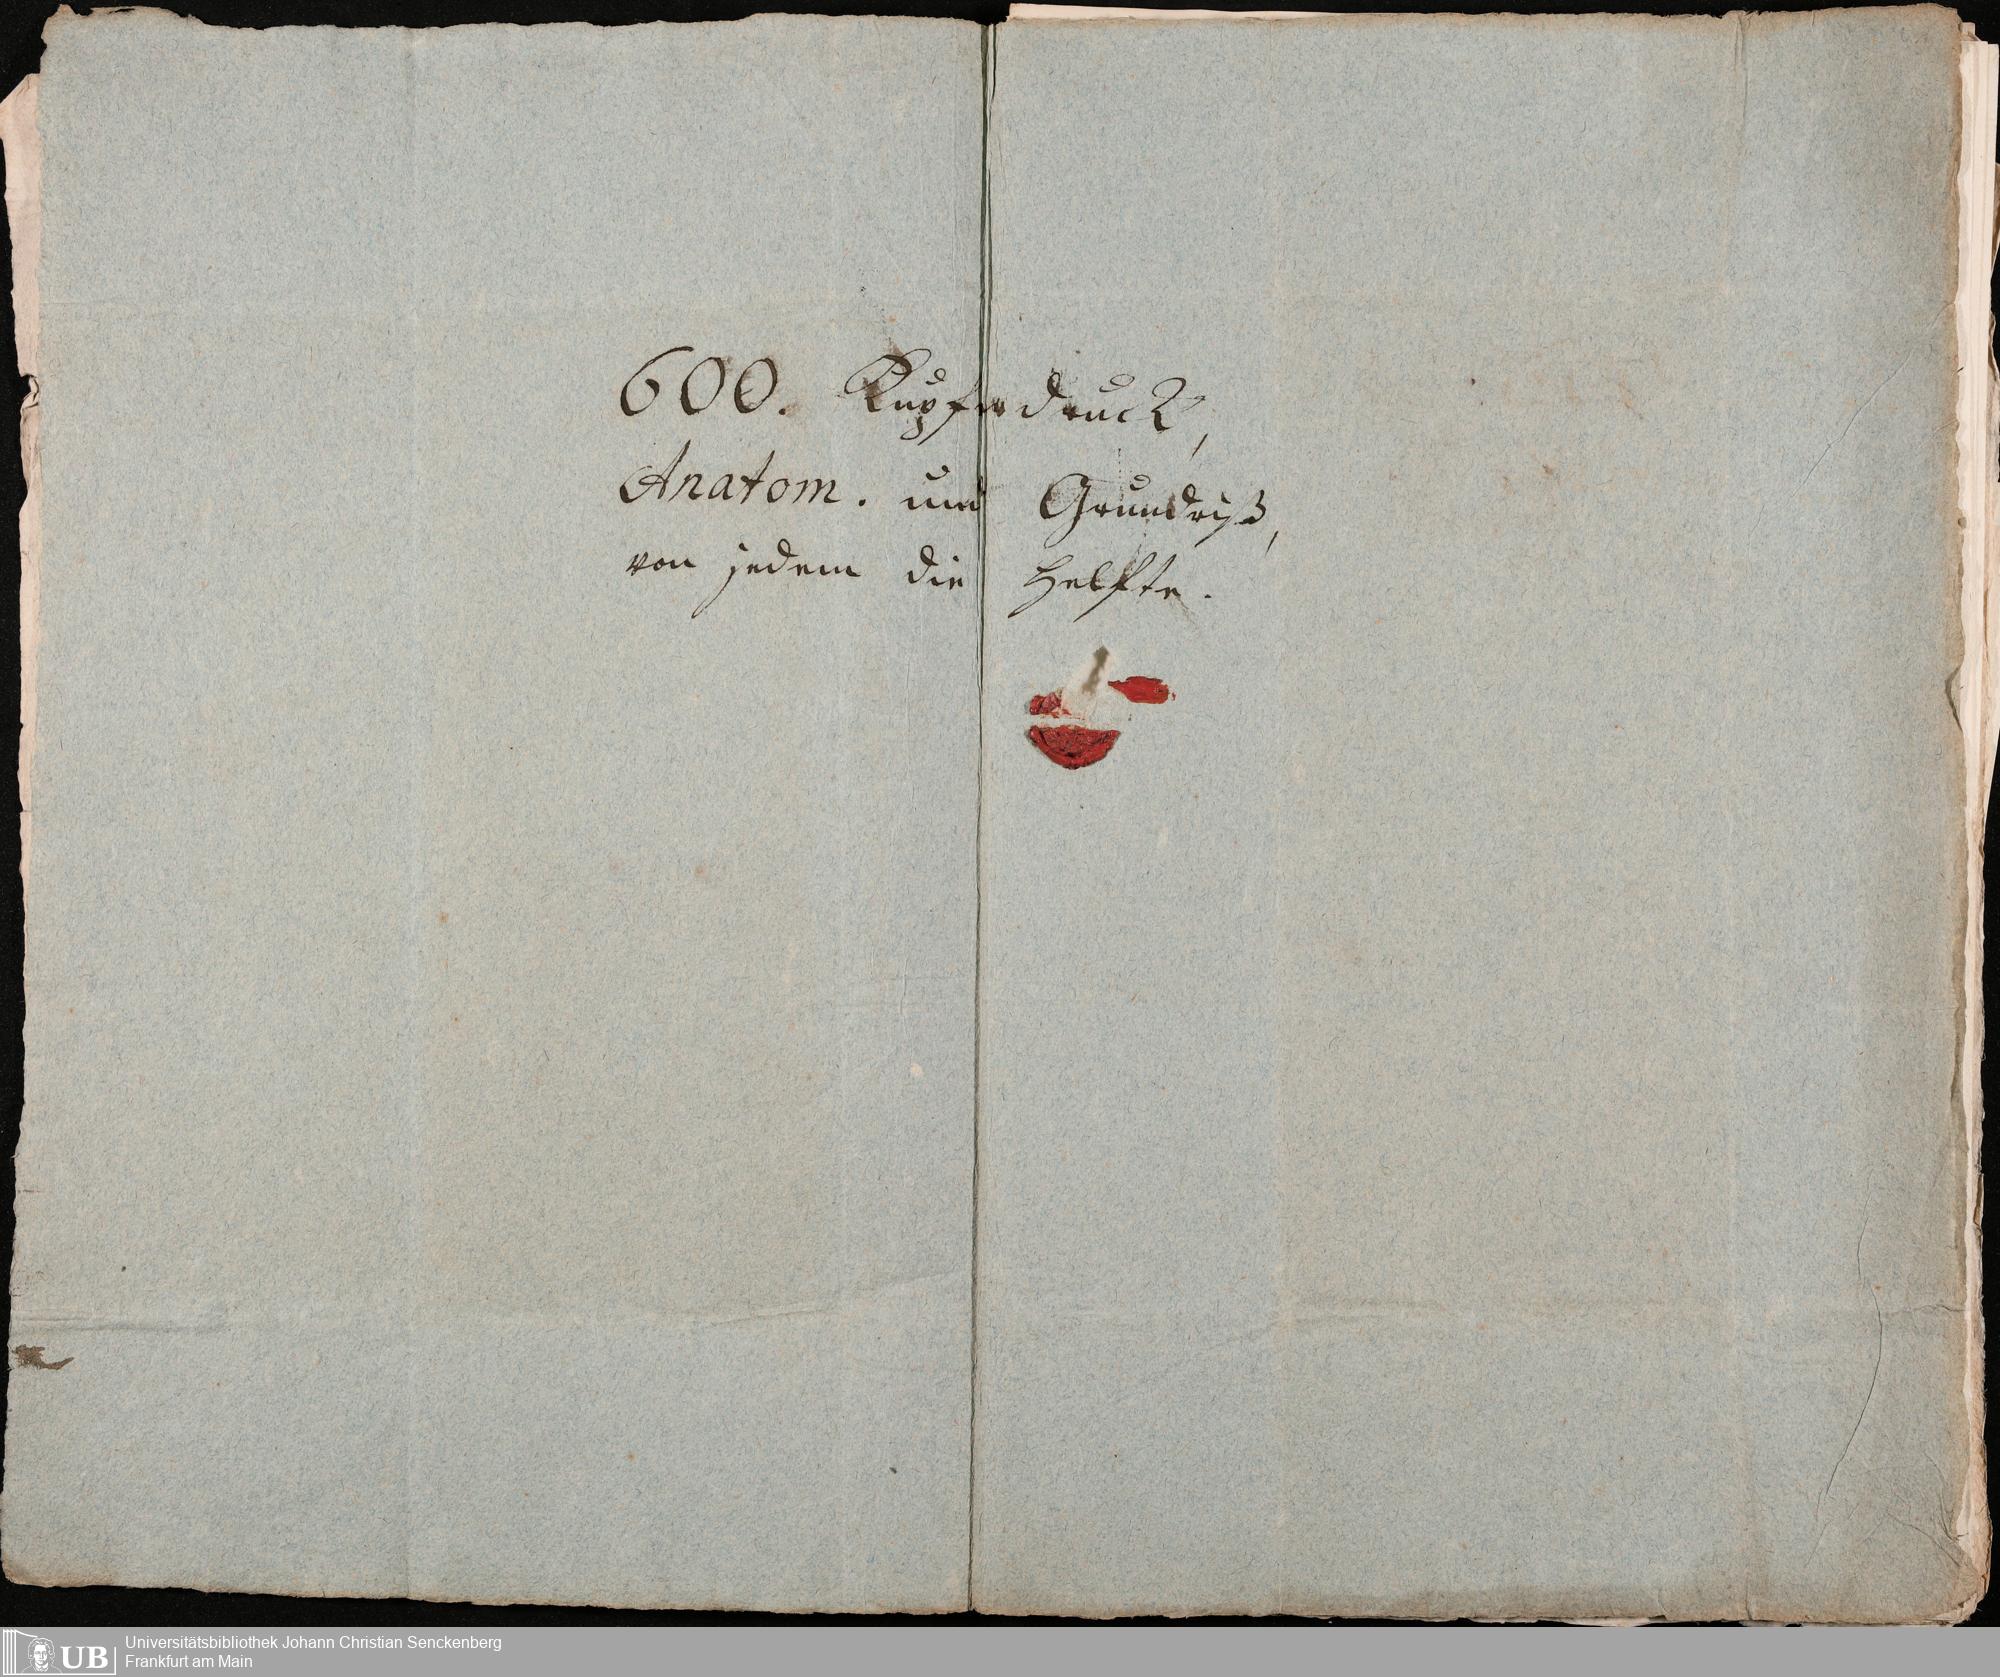 600. Kupferdruck,
Anatom. und Grundriß,
von jedem die Helfte.
UB
Universitätsbibliothek Johann Christian Senckenberg
Frankfurt am Main